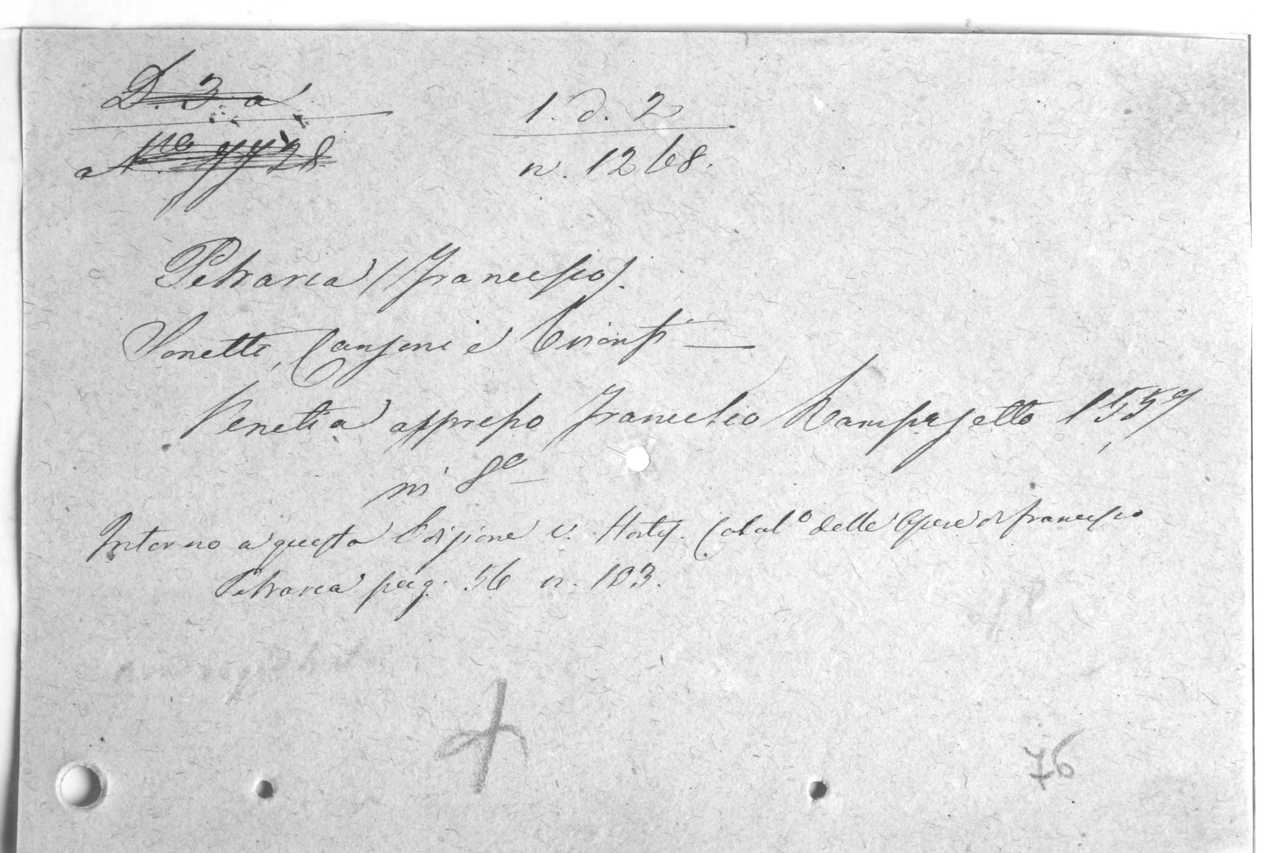 D. 3. a
1. d. 2
n. 1268.
Petrarca (Francesco).
Sonetti, Canzoni e Trionfi —
Venetia appresso Francesco Rampazetto 1559
in 8º
Intorno a questa Edizione v. Hortis. Catalº delle Opere di Francesco
Petrarca pag. 56 n. 103.
76